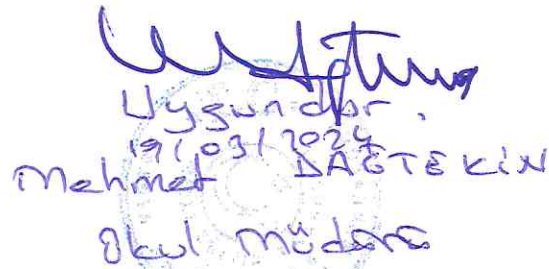 Uygundur.
19/03/2024
Mehmet DAĞTEKİN
Okul Müdürü